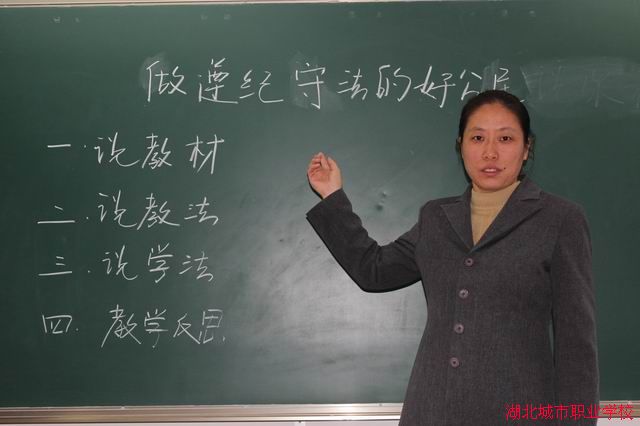 做遵纪守法的好公民
一.说教材
二.说教法
三.说学法
四.教学反思
湖北城市职业学校